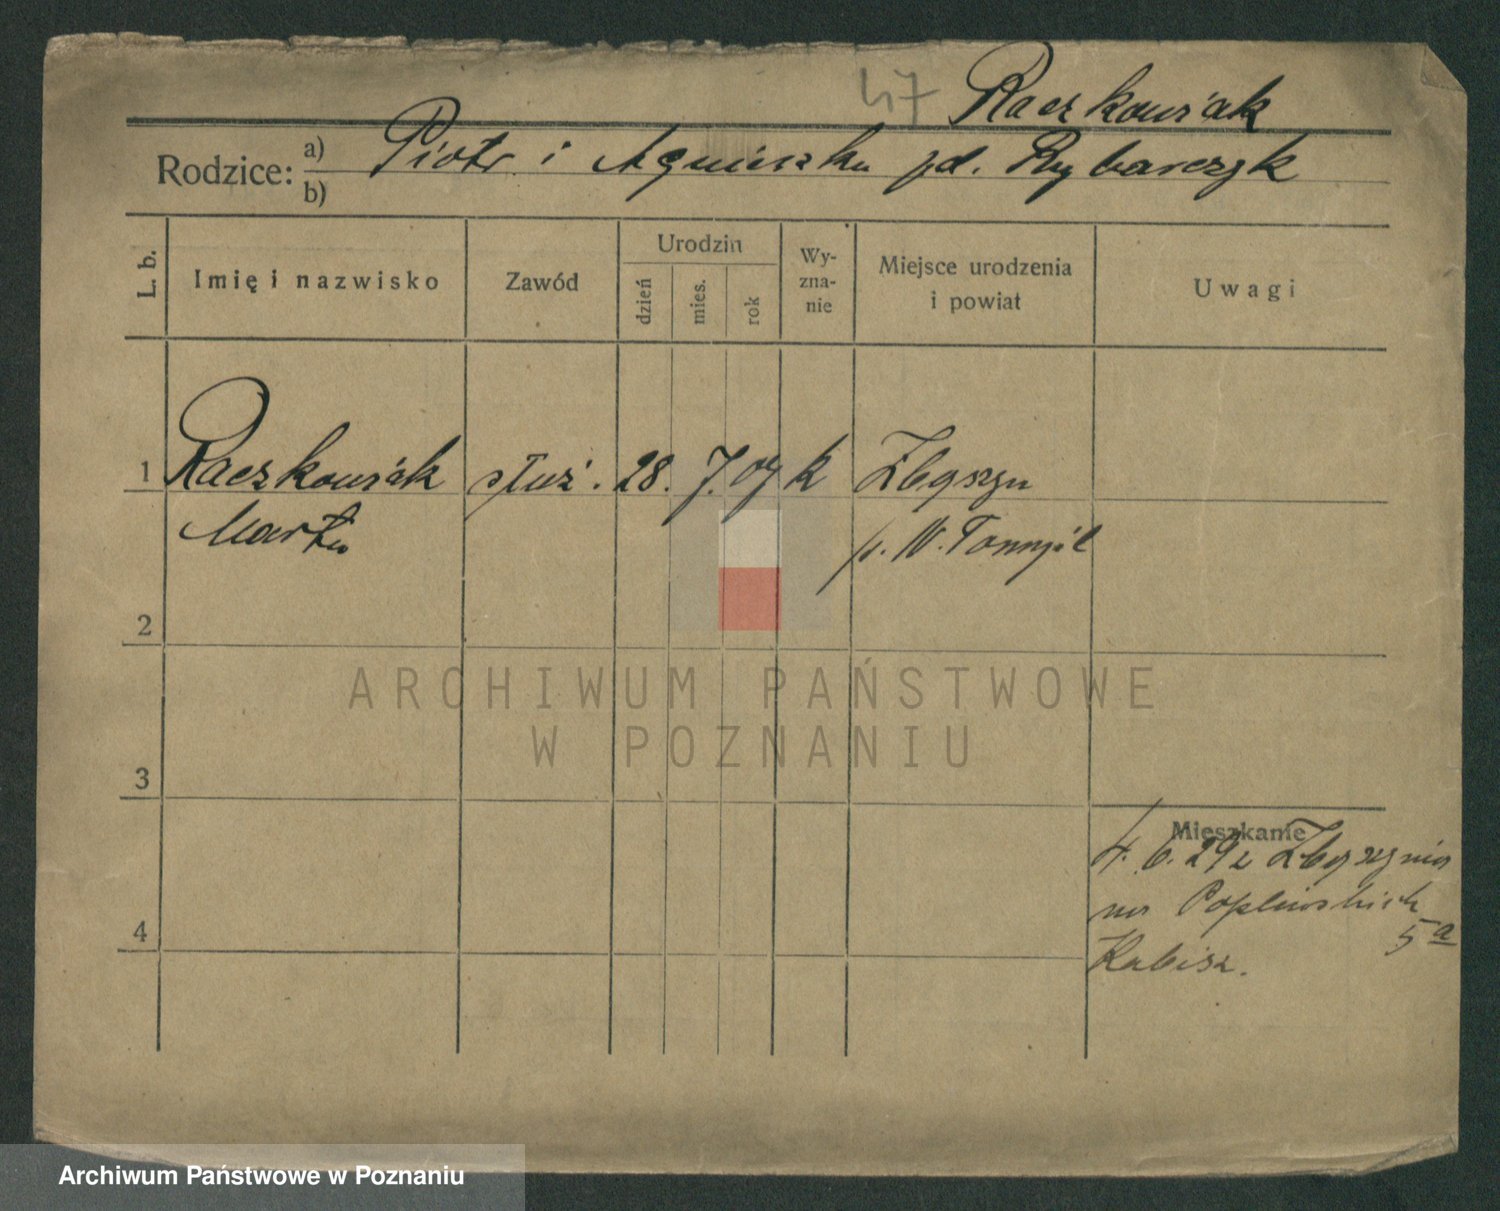 47 Raczkowiak
Rodzice: a) Piotr i Agnieszka zd. Rybarczyk
b)
L. b.
Imię i nazwisko
Zawód
Urodzin
dzień
mies.
rok
Wy-
zna-
nie
Miejsce urodzenia
i powiat
Uwagi
1 Raczkowiak służ. 28. 7. 07 k Zbąszyń
Marta p. N. Tomyśl
2
ARCHIWUM PAŃSTWOWE
W POZNANIU
3
Mieszkanie
4. 6. 29 z Zbąszynia
na Poplińskich
5a
4
Kabisz.
Archiwum Państwowe w Poznaniu